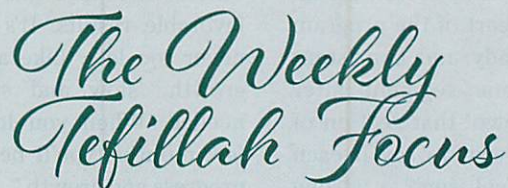 The Weekly
Tefillah Focus